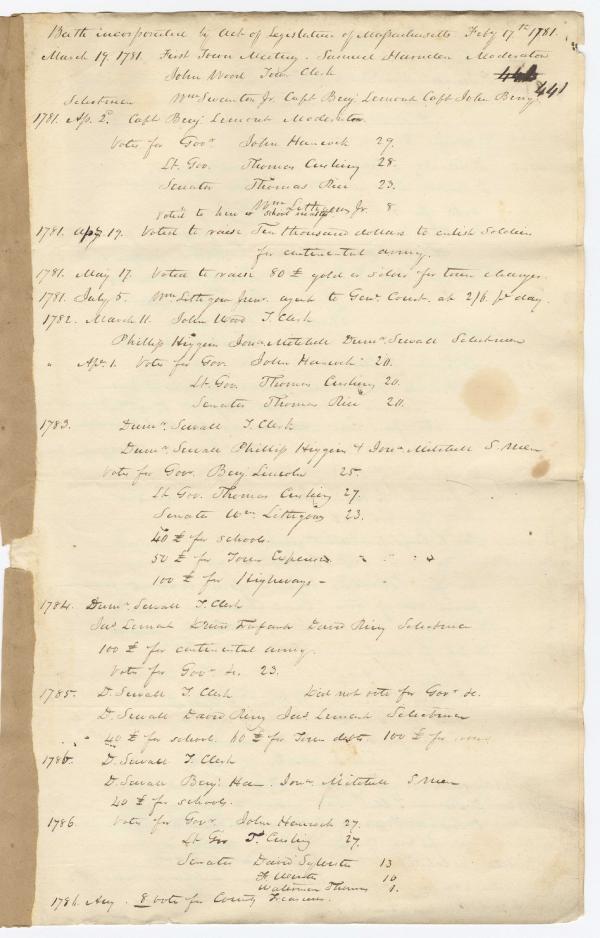 Bath incorporated by Act of Legislature of Massachusetts Feby 17th 1781.
March 19. 1781. First Town Meeting. Samuel Harnden Moderator
John Wood Town Clerk
441
Selectmen Wm Swanton Jr. Capt Benj Lemont Capt John Berry
1781. Ap. 2d. Capt Benj Lemont Moderator.
Votes for Govr John Hancock 29.
Lt. Gov. Thomas Cushing 28.
Senator Thomas Rice 23.
Wm Lithgow Jr. 8
Voted to hire a school master
1781. 19. Voted to raise Ten thousand dollars to enlist Soldiers
for continental army.
1781. May 17. Voted to raise 80 £ gold or silver for town charges.
1781. July 5. Wm Lithgow Junr. agent to Genl Court. at 2/6 pr day.
1782. March 11. John Wood T. Clerk
Phillip Higgins Jona. Mitchell Dumr. Sewall Selectmen
" Apr. 1. Votes for Gov. John Hancock 20.
Lt. Gov. Thomas Cushing 20.
Senator Thomas Rice 20.
1783. Dumr. Sewall T. Clerk
Dumr. Sewall Phillip Higgins & Jona. Mitchell S. Men
Votes for Govr. Benj. Lincoln 25.
Lt. Gov. Thomas Cushing 27.
Senator Wm. Lithgow 23.
40 £ for schools.
50 £ for Town Expenses
100 £ for Highways -
1784. Dumr. Sewall T. Clerk
Jas. Lemont David Ring Selectmen
100 £ for continental army.
Votes for Govr &c. 23.
1785. D. Sewall T. Clerk Did not vote for Govr &c.
D. Sewall David Ring Jas. Lemont Selectmen
" 40 £ for school. 60 £ for Town debts. 100 £ for
1786. D. Sewall T. Clerk
D. Sewall Benj. Ham. Jona. Mitchell S. Men
40 £ for schools.
1786. Votes for Govr. John Hancock 27.
Lt Gov T. Cushing 27.
Senator David Sylvester 13
10
Waterman Thomas 1.
1786. Aug. 8 Votes for County Treasurer.